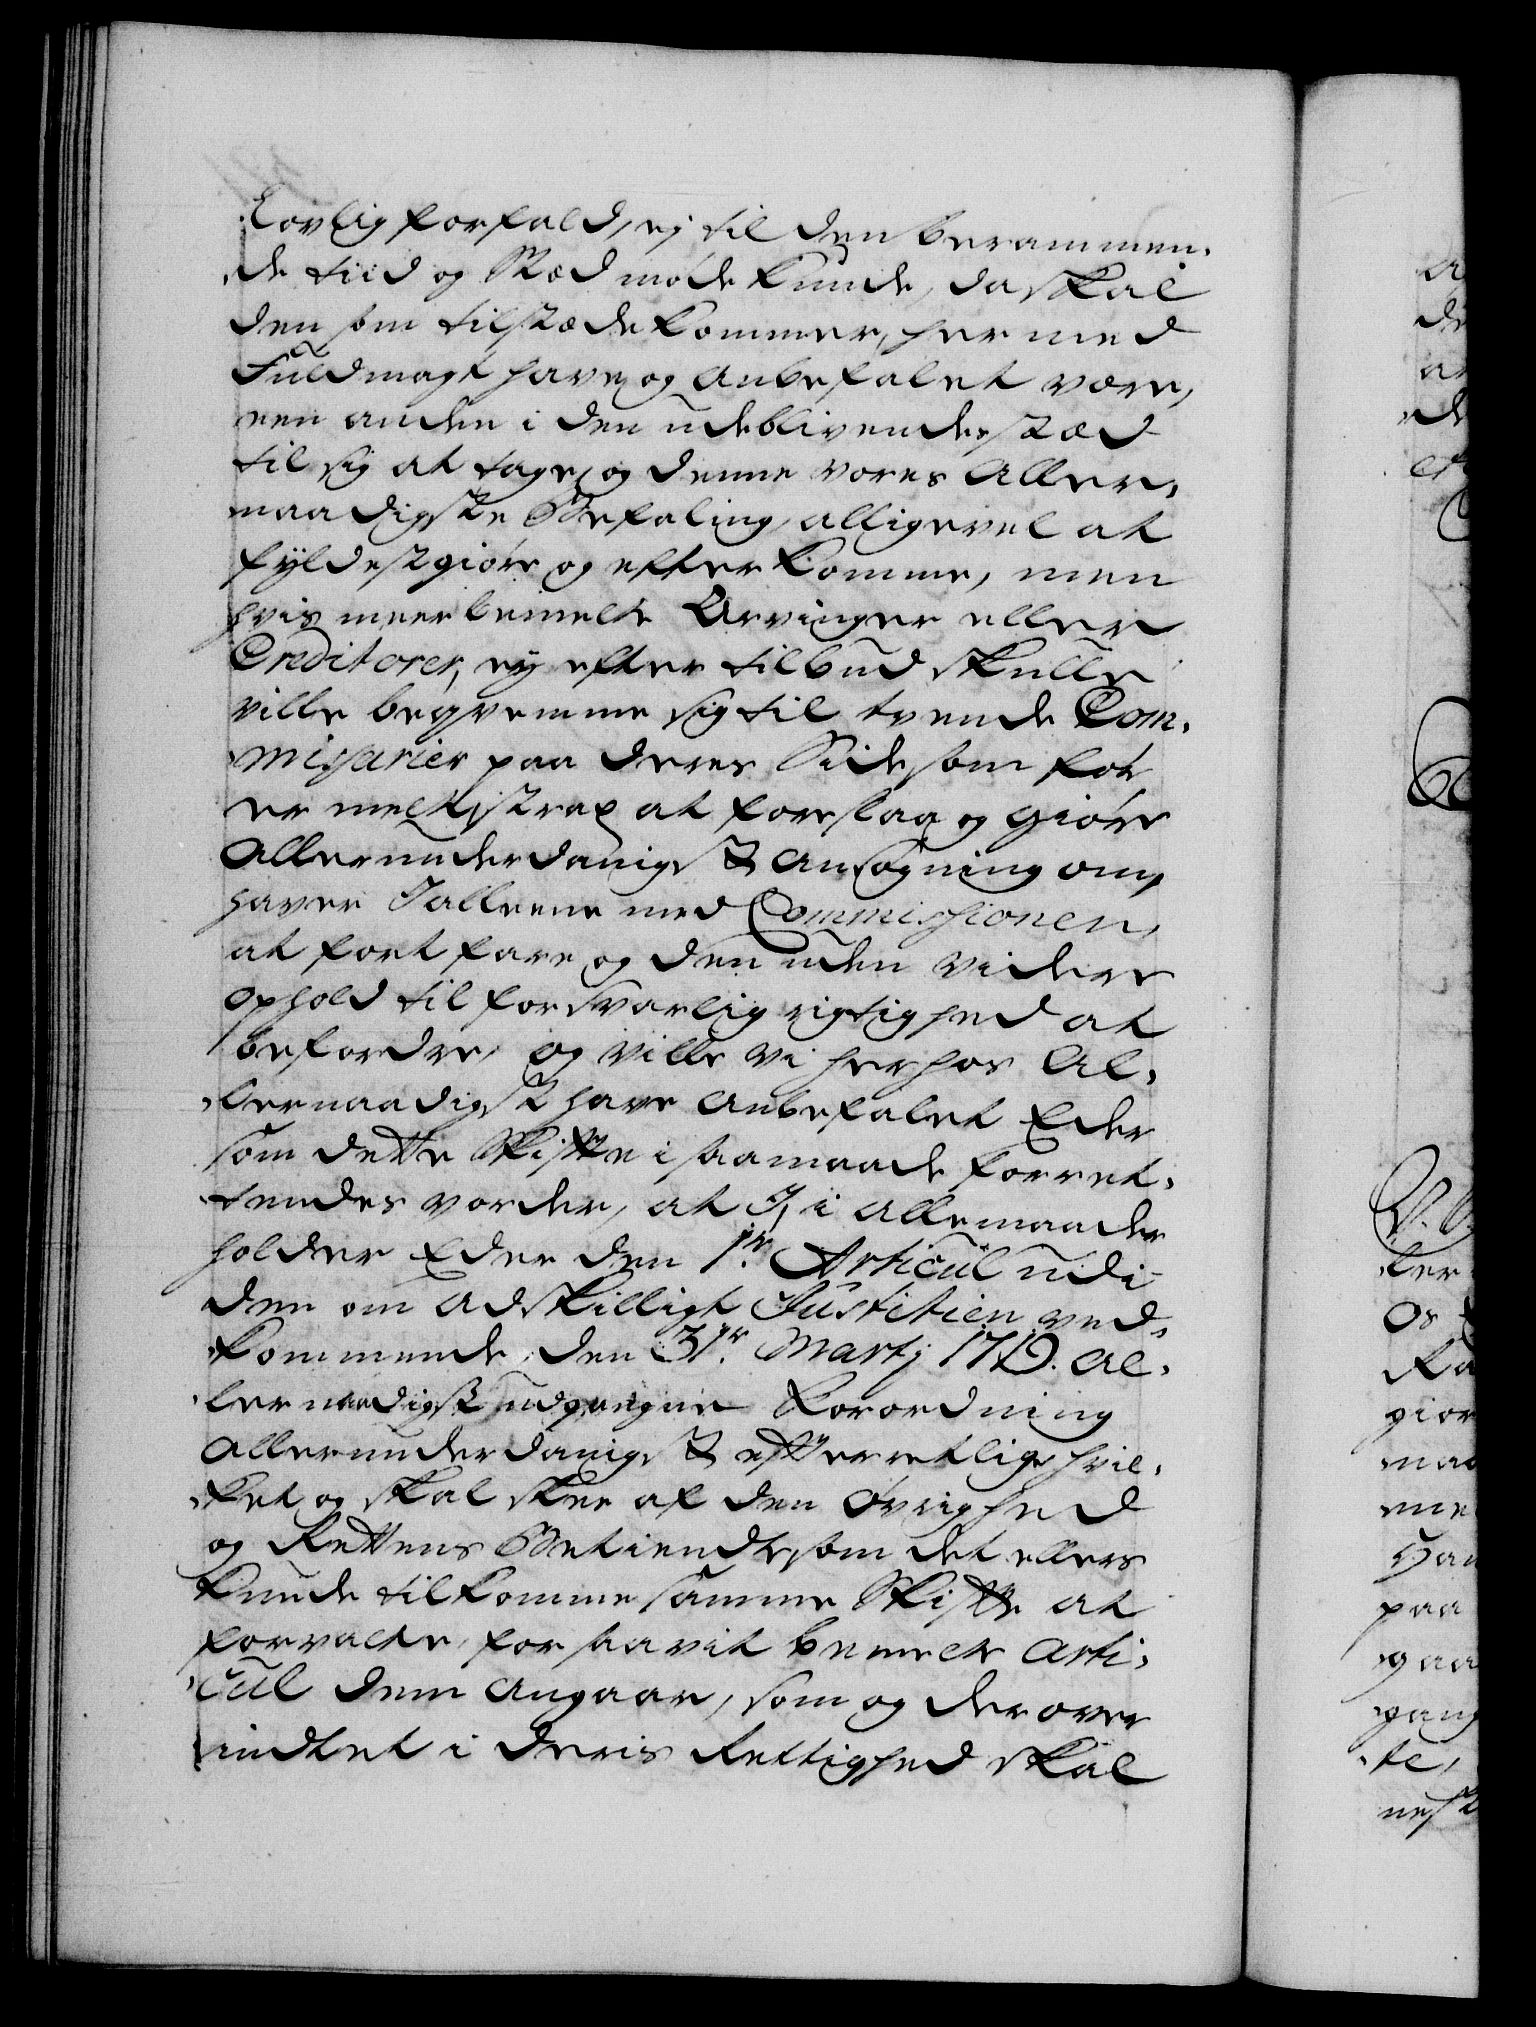 Lovlig forfald, ej til den berammen,
de tiid og Stæd møde kunde, da skal
den som tilstæde kommer, her med
Fuldmagt have, og anbefalet være,
een anden i den udeblivendes stæd
til sig at tage, og denne vores Aller,
naadigste Befaling, alligevel at
fyldestgiøre og efterkomme, men
hvis meerbemelte Arvinger eller
Creditorer, ey efter tilbud skulle
ville beqvemme sig til tvende Com,
missarier paa deres Side, som før
er melt, strax at foreslaa og giøre
Allerunderdanigst Ansøgning om,
haver I alleene med Commissionen,
at fortfare og den uden videre
ophold til forsvarlig rigtighed at
befordre, og ville vi herhos Al,
lernaadigst have anbefalet Eder
som dette Skifte i saamaade forret,
tendes vorder, at I, i allemaader
holder Eder den 1te Articul udi
den om adskilligt Justitien ved,
kommende, den 31te Martj 1719. Al,
lernaadigst udgangne Forordning
Allerunderdanigst efterretlig, hvil,
ket og skal skee af den Øvrighed
og Rettens Betiendte, som det ellers
kunde tilkomme samme Skifte at
forvalte, for saavit bemelte Arti,
cul dem angaar, som og derover
indtet i deris Rettighed skal